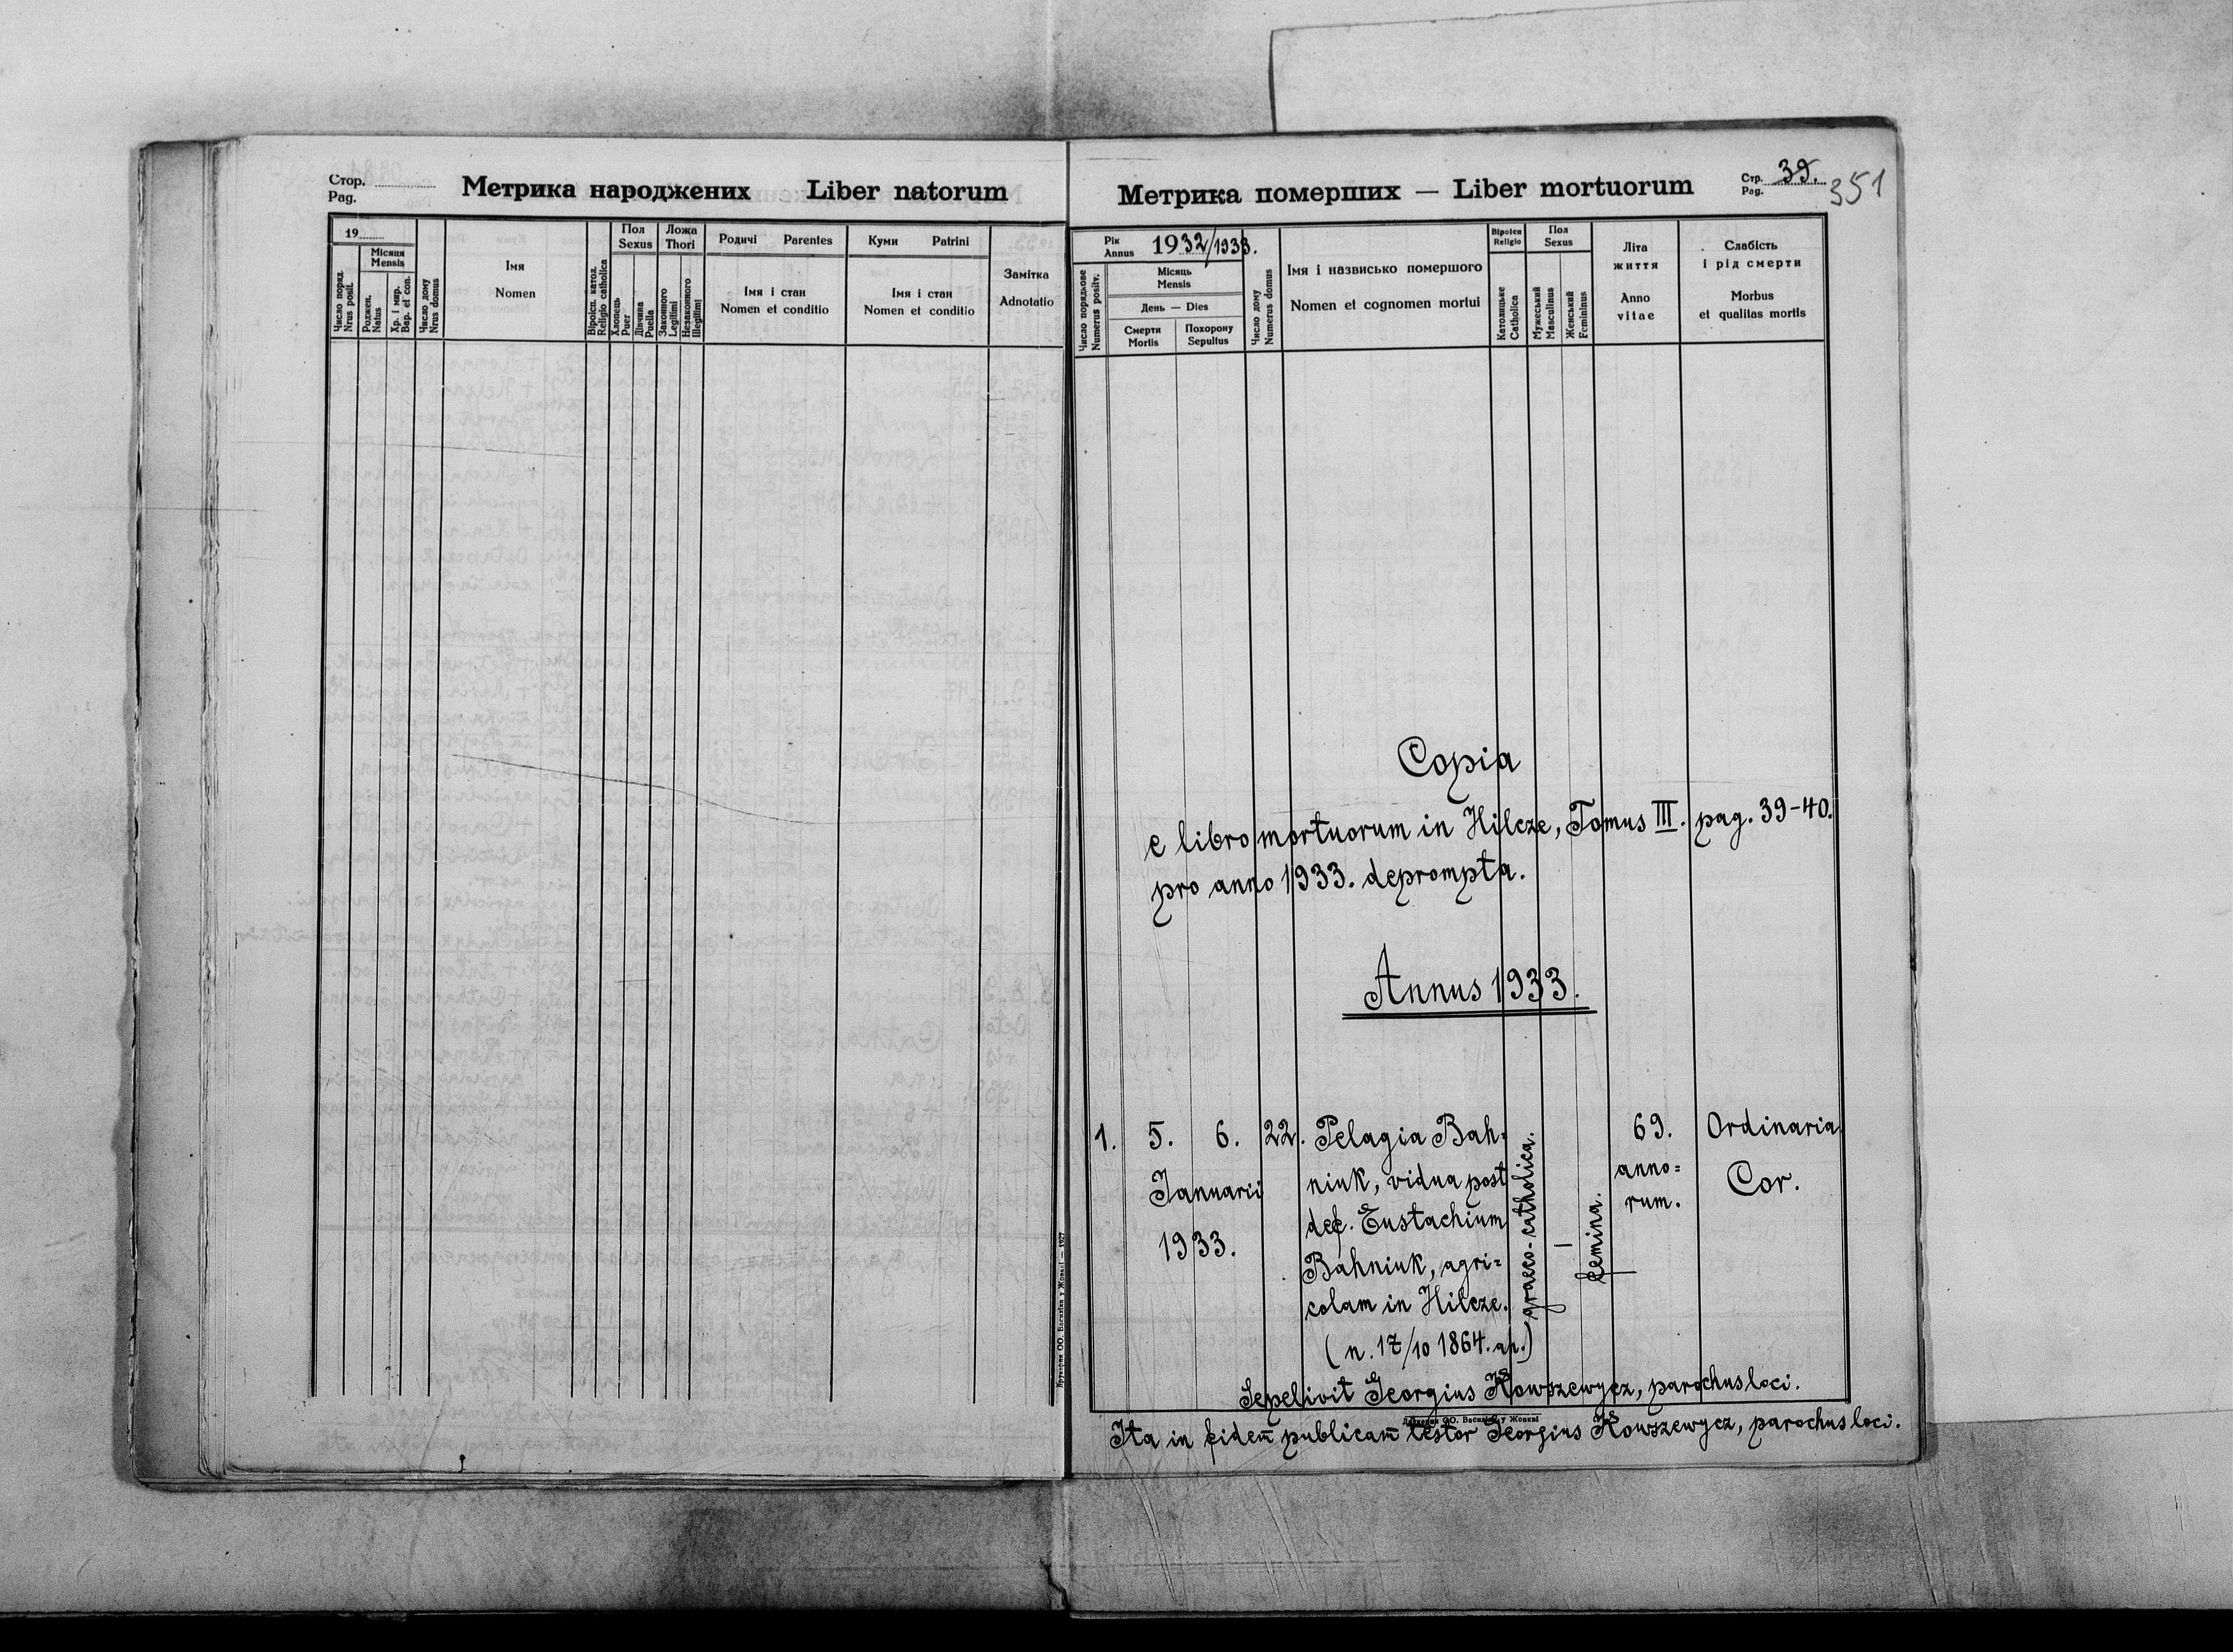 Стор.
Pag.
Метрика народжених Liber natorum
19
Число поряд.
Nrus posit.
Місяця
Mensis
Роджен.
Natus
Хр. і мир.
Bap. et con.
Число дому
Nrus domus
Імя
Nomen
Віроісп. катол.
Religio catholica
Пол
Sexus
Хлопець
Puer
Дівчина
Puella
Ложа
Thori
Законного
Legitimi
Незаконного
Illegitimi
Родичі Parentes
Імя і стан
Nomen et conditio
Куми Patrini
Імя і стан
Nomen et conditio
Замітка
Adnotatio
Друкарня ОО. Василіян у Жовкві — 1927
Метрика померших — Liber mortuorum
Стр.
Pag. 39.
351
Рік
Annus 1932/1933.
Число порядкове
Numerus positv.
Місяць
Mensis
День — Dies
Смерти
Mortis
Похорону
Sepultus
Число дому
Numerus domus
Імя і назвисько помершого
Nomen et cognomen mortui
Віроісп
Religio
Католицьке
Catholica
Пол
Sexus
Мужеський
Masculinus
Женський
Femininus
Літа
життя
Anno
vitae
Слабість
і рід смерти
Morbus
et qualitas mortis
Copia
e libro mortuorum in Hilcze, Tomus III. pag. 39-40.
pro anno 1933. deprompta.
Annus 1933.
1. 5. 6. 22. Pelagia Bah-
niuk, vidua post
def. Eustachium
Bahniuk, agri=
colam in Hilcze.
(n. 17/10 1864. ap.)
Januarii
1933.
graeco-catholica.
—
femina.
69.
anno=
rum.
Ordinaria
Cor.
Sepelivit Georgius Kowszewycz, parochus loci.
Друкарня ОО. Василіян у Жовкві
Ita in fidem publicam testor Georgius Kowszewycz, parochus loci.